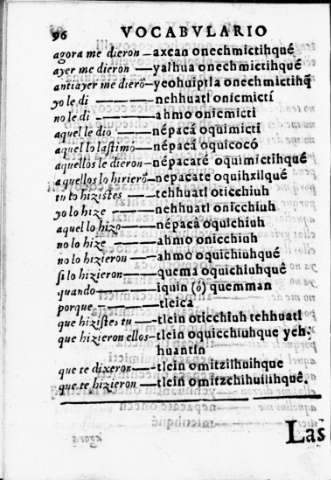 96 VOCABVLARIO
agora me dieron — axcan onechmictihqué
ayer me dieron — yalhua onechmictihqué
antiayer me dierõ — yeohuiptla onechmictihq̃
yo le di — nehhuatl onicmictí
no le di — ahmo onicmicti
aquel le dio — népacá oquimicti
aquel lo lastimó — népacá oquicocó
aquellos le dieron — népacaté oquimictihqué
aquellos lo hirierõ — népacate oquihxilqué
tu lo hizistes — tehhuatl oticchiuh
yo lo hize — nehhuatl onicchiuh
aquel lo hizo — népacà oquichiuh
no lo hize — ahmo onicchiuh
no lo hizieron — ahmo oquichiuhqué
si lo hizieron — quema oquichiuhqué
quando — iquin (ó) quemman
porque — tleica
que hiziste tu — tlein oticchiuh tehhuatl
que hizieron ellos — tlein oquicchiuhque yeh-
huantin
que te dixeron — tlein omitzilhuihque
que te hizieron — tlein omitzchihuilihquê.
Las